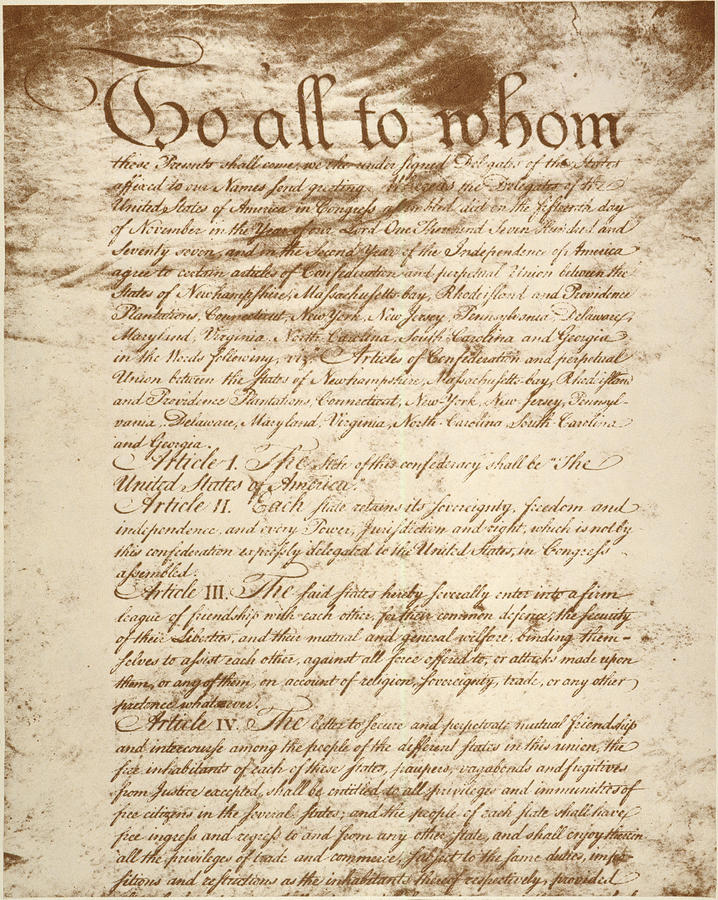 To all to whom
these Presents shall come, we the under signed Delegates of the States
affixed to our Names send greeting. Whereas the Delegates of the
United States of America in Congress assembled did on the fifteenth day
of November in the Year of our Lord One Thousand Seven Hundred and
Seventy seven, and in the Second Year of the Independence of America
agree to certain articles of Confederation and perpetual Union between the
States of Newhampshire, Massachusetts-bay, Rhodeisland and Providence
Plantations, Connecticut, New York, New Jersey, Pennsylvania, Delaware,
Maryland, Virginia, North-Carolina, South-Carolina and Georgia
in the Words following, viz. "Articles of Confederation and perpetual
Union between the States of Newhampshire, Massachusetts-bay, Rhodeisland
and Providence Plantations, Connecticut, New-York, New-Jersey, Pennsyl-
vania, Delaware, Maryland, Virginia, North-Carolina, South-Carolina
and Georgia.
Article I. The Stile of this confederacy shall be "The
United States of America."
Article II. Each state retains its sovereignty, freedom and
independence, and every Power, Jurisdiction and right, which is not by
this confederation expressly delegated to the United States, in Congress
assembled.
Article III. The said states hereby severally enter into a firm
league of friendship with each other, for their common defence, the security
of their Liberties, and their mutual and general welfare, binding them-
selves to assist each other, against all force offered to, or attacks made upon
them, or any of them, on account of religion, sovereignty, trade, or any other
pretence whatever.
Article IV. The better to secure and perpetuate mutual friendship
and intercourse among the people of the different states in this union, the
free inhabitants of each of these states, paupers, vagabonds and fugitives
from Justice excepted, shall be entitled to all privileges and immunities of
free citizens in the several states; and the people of each state shall have
free ingress and regress to and from any other state, and shall enjoy therein
all the privileges of trade and commerce, subject to the same duties, impo-
sitions and restrictions as the inhabitants thereof respectively, provided